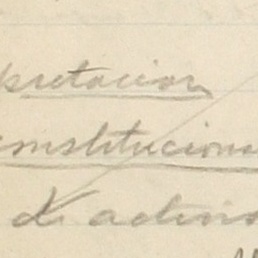 pretacion
constitucional
de activi